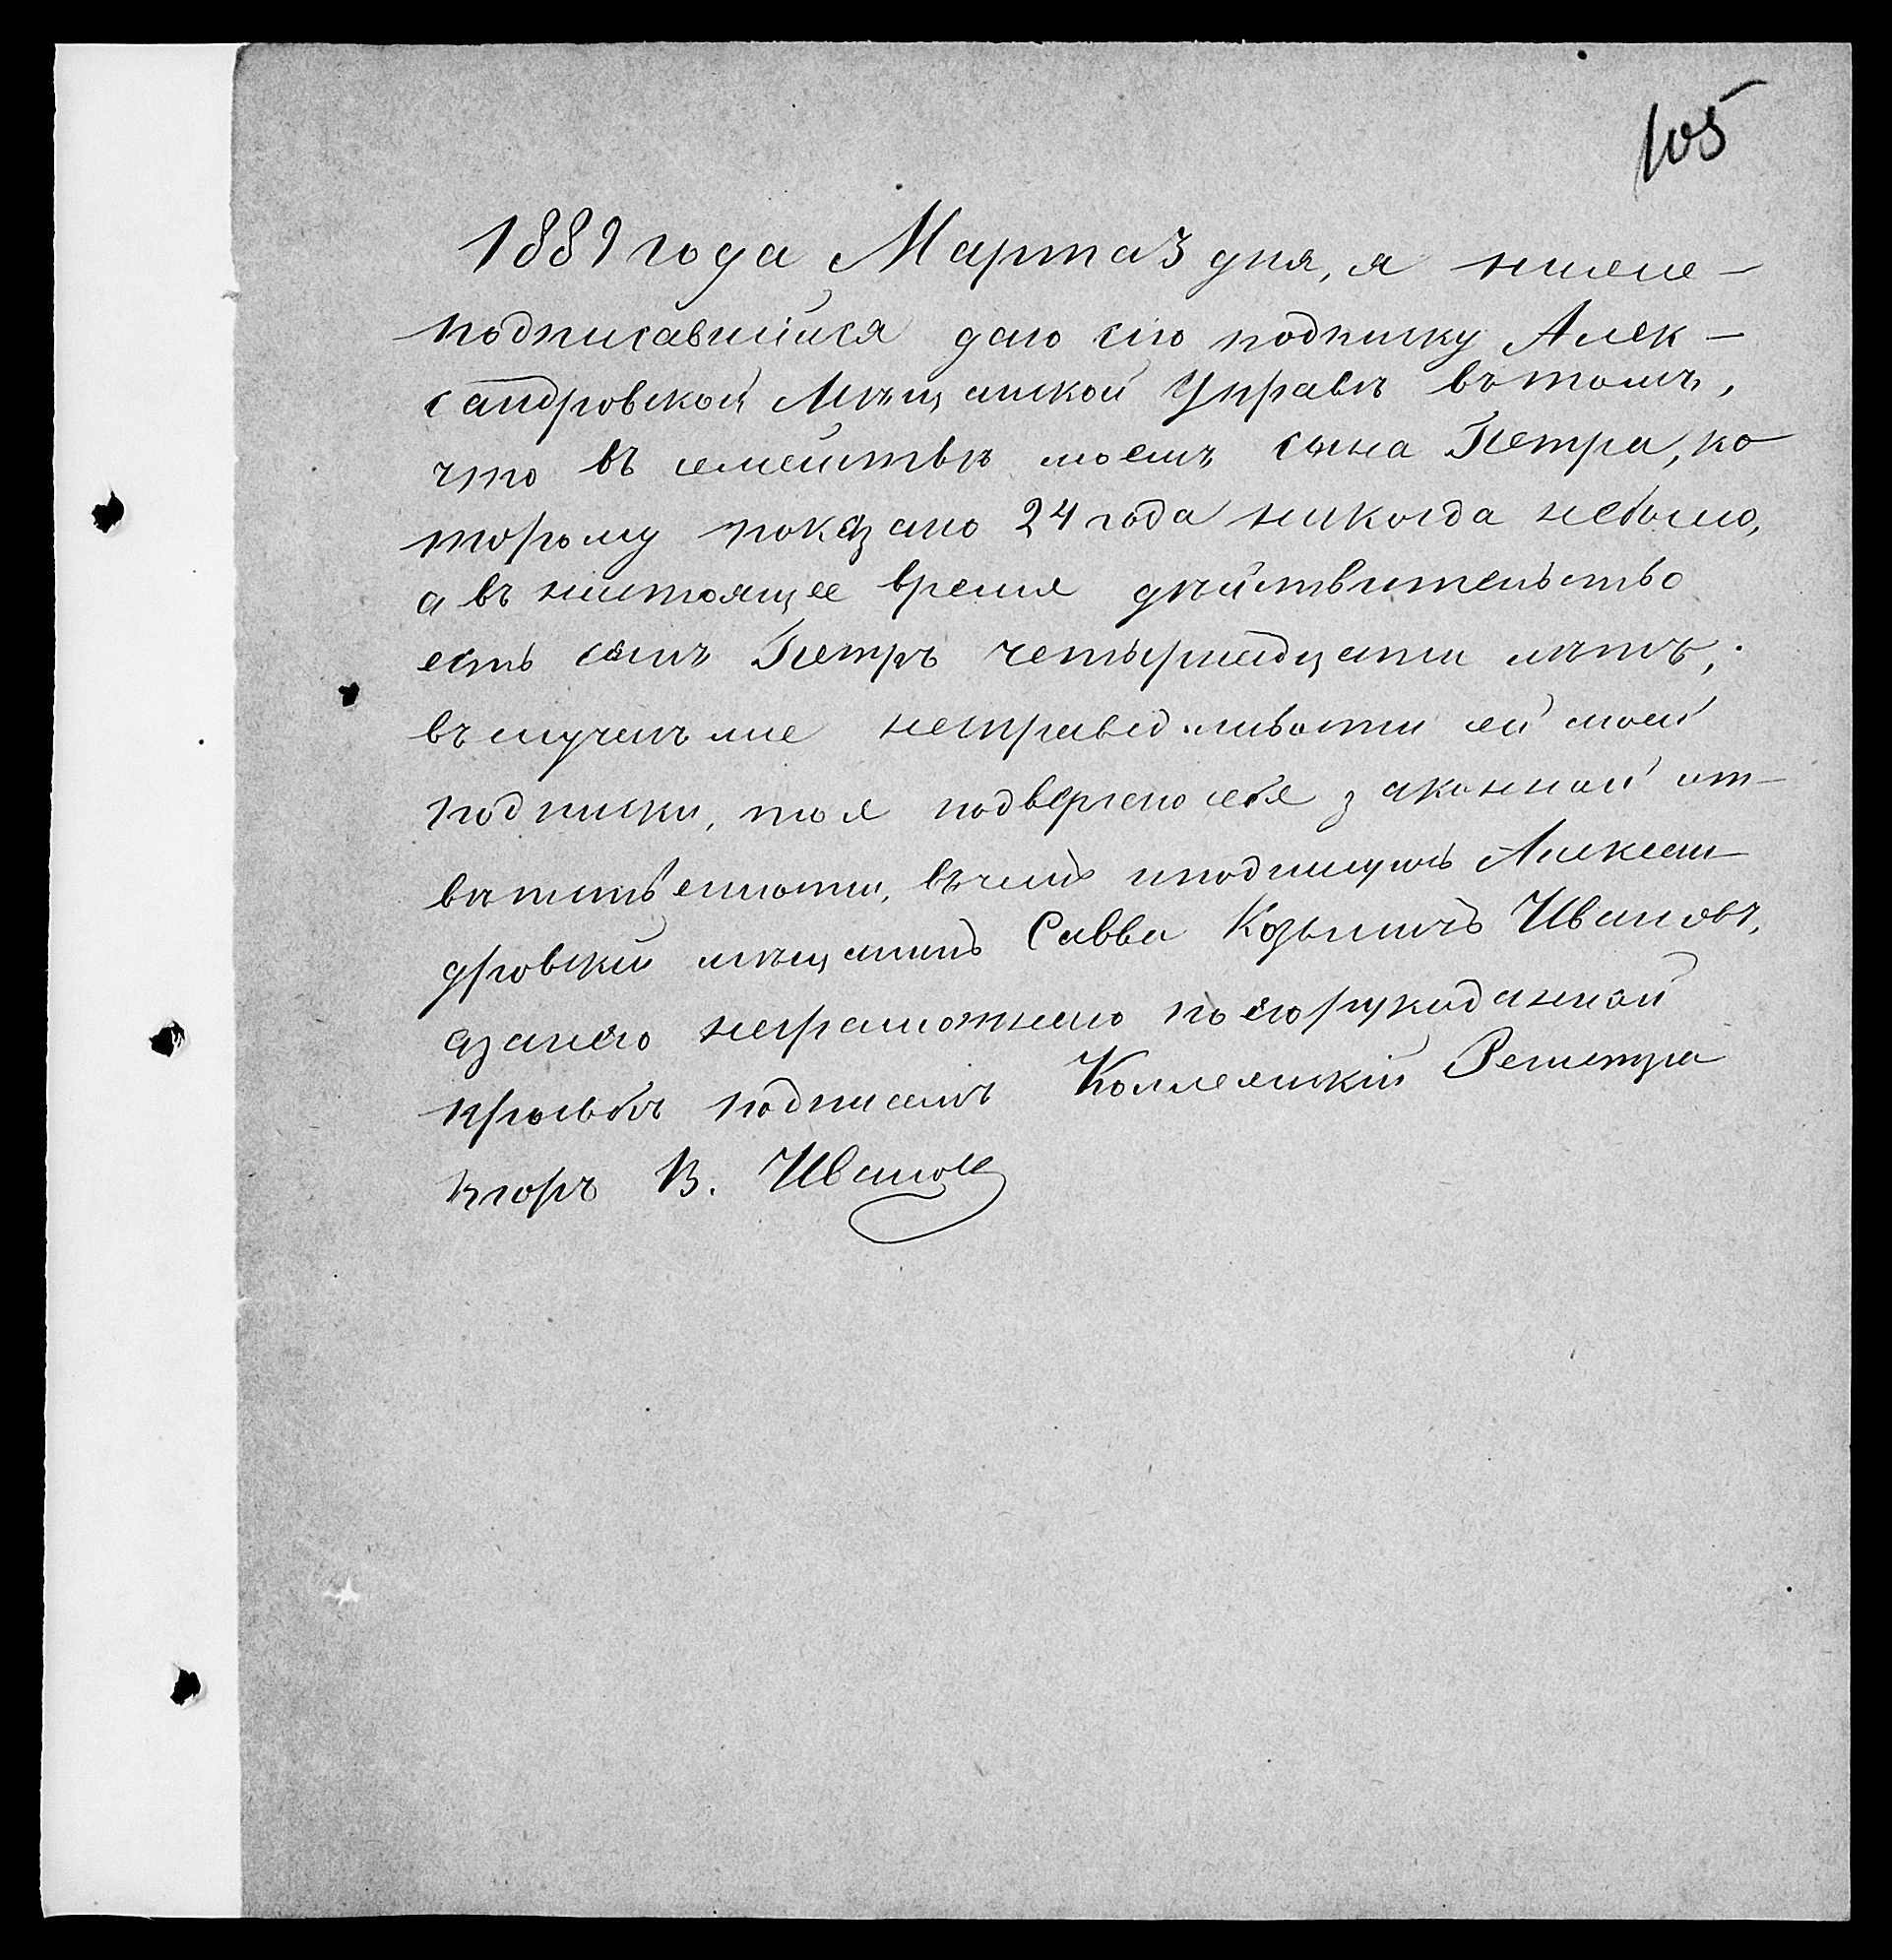 105
1889 года Марта 3 дня, я ниже-
подписавшійся даю сію подписку Алек-
сандровской Мѣщанской Управѣ въ томъ,
что въ семействѣ моемъ сына Петра, ко
торому показано 24 года никогда небыло,
а въ настоящее время дѣйствительство
есть сынъ Петръ четырнадцати лѣтъ;
въ случаѣ же несправедливости сей моей
подписки, то я подвергаю себя законной от-
вѣтственности, въ чемъ и подпишусь Алексан-
дровскій мѣщанинъ Савва Козьмичъ Ивановъ,
а за него неграмотнаго по его рукоданной
просьбѣ подписалъ Коллежскій Регистра
торъ В. Ивановъ